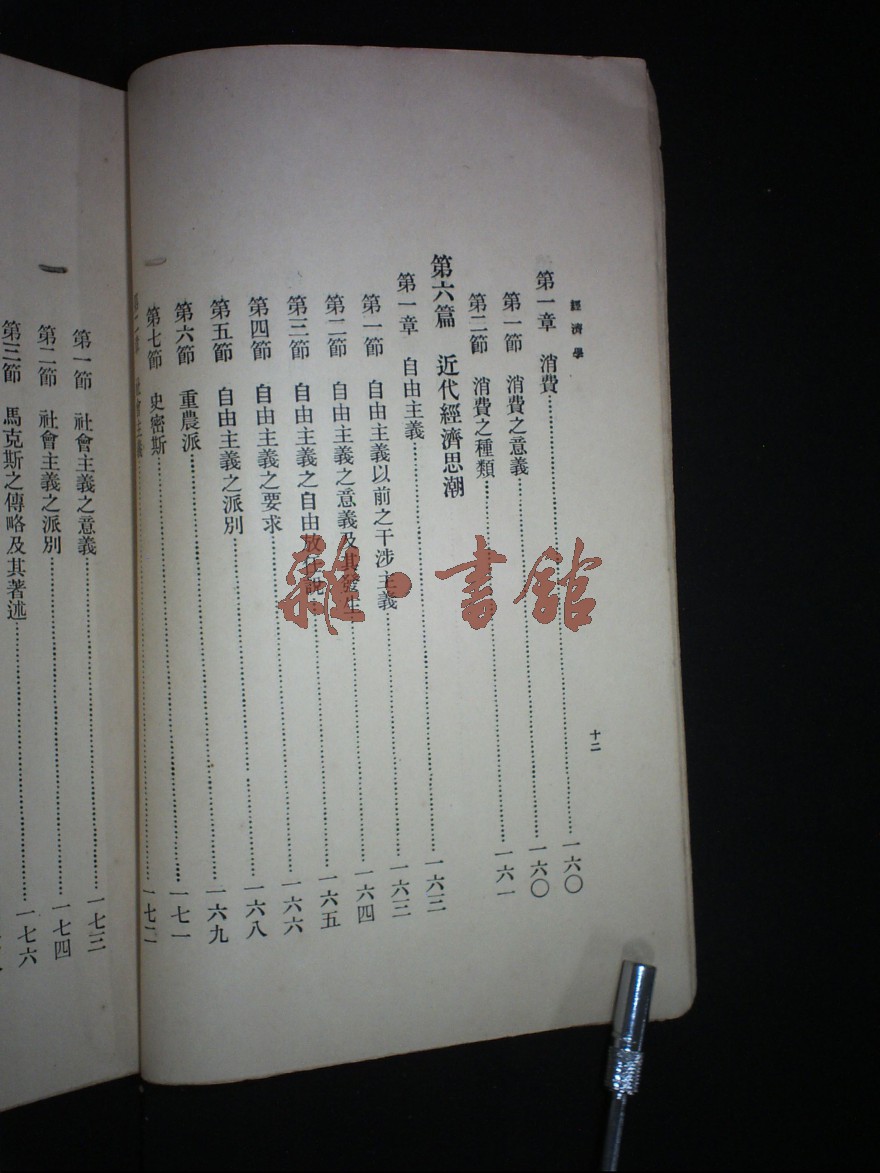 經濟學
十二
第一章 消費……一六〇
第一節 消費之意義……一六〇
第二節 消費之種類……一六一
第六篇 近代經濟思潮
第一章 自由主義……一六三
第一節 自由主義以前之干涉主義……一六三
第二節 自由主義之意義及其發生……一六四
第三節 自由主義之自由放任說……一六五
第四節 自由主義之要求……一六六
第五節 自由主義之派別……一六八
第六節 重農派……一六九
第七節 史密斯……一七一
社會主義……一七二
第一節 社會主義之意義……一七三
第二節 社會主義之派別……一七四
第三節 馬克斯之傳略及其著述……一七六
雜·書館